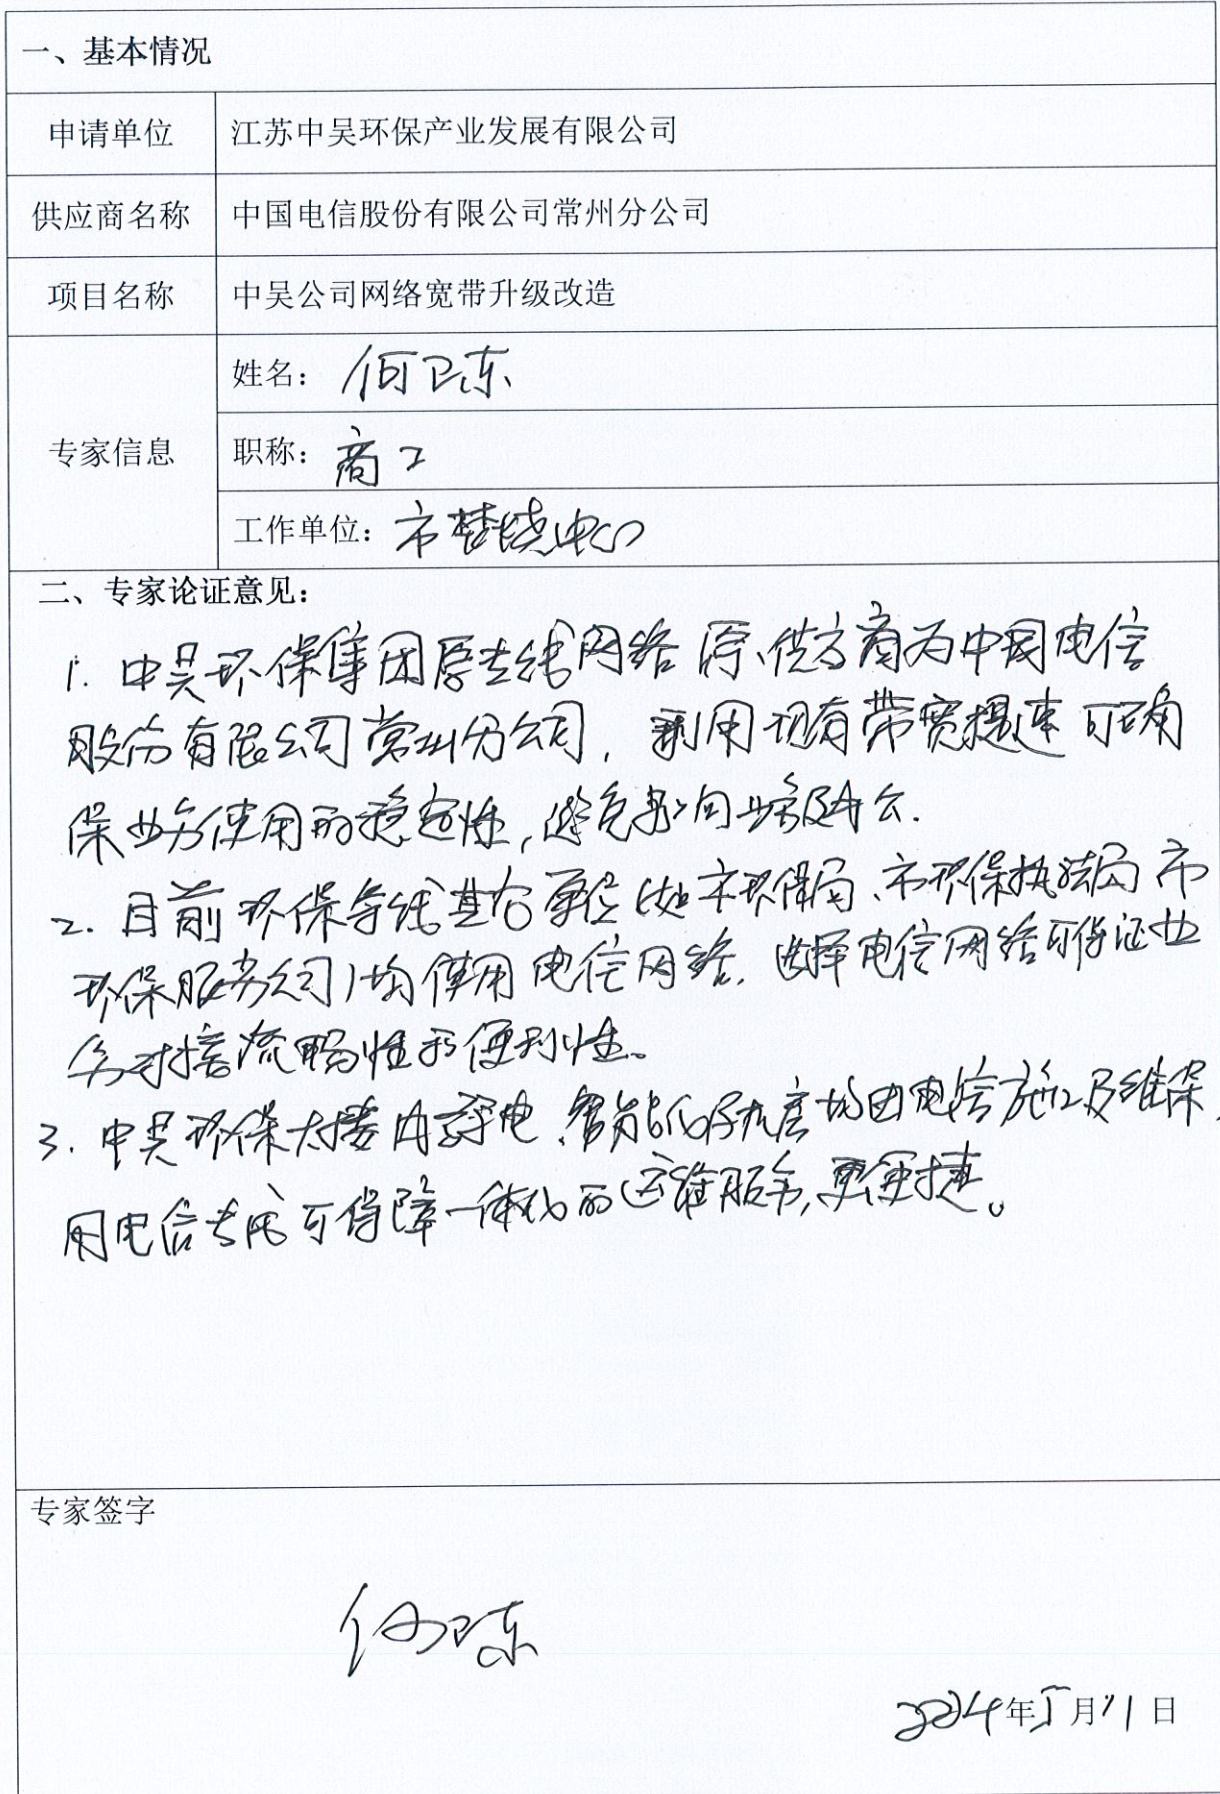 一、基本情况
申请单位 江苏中吴环保产业发展有限公司
供应商名称 中国电信股份有限公司常州分公司
项目名称 中吴公司网络宽带升级改造
专家信息
姓名：何卫东
职称：高工
工作单位：市焚烧中心
二、专家论证意见：
1. 中吴环保集团原专线网络 供方商为中国电信
股份有限公司常州分公司，利用现有带宽提速可确
保业务使用的稳定性，避免影响业务
2. 目前环保条线其它单位（如市环保局、市环保执法局 市
环保服务公司）均使用电信网络，选择电信网络可保证业
务对接流畅性和便利性。
3. 中吴环保大楼内弱电、智能化 机房均由电信施工及维保，
用电信专网可保障一体化的运维服务，更便捷。
专家签字
何卫东
2024年5月11日